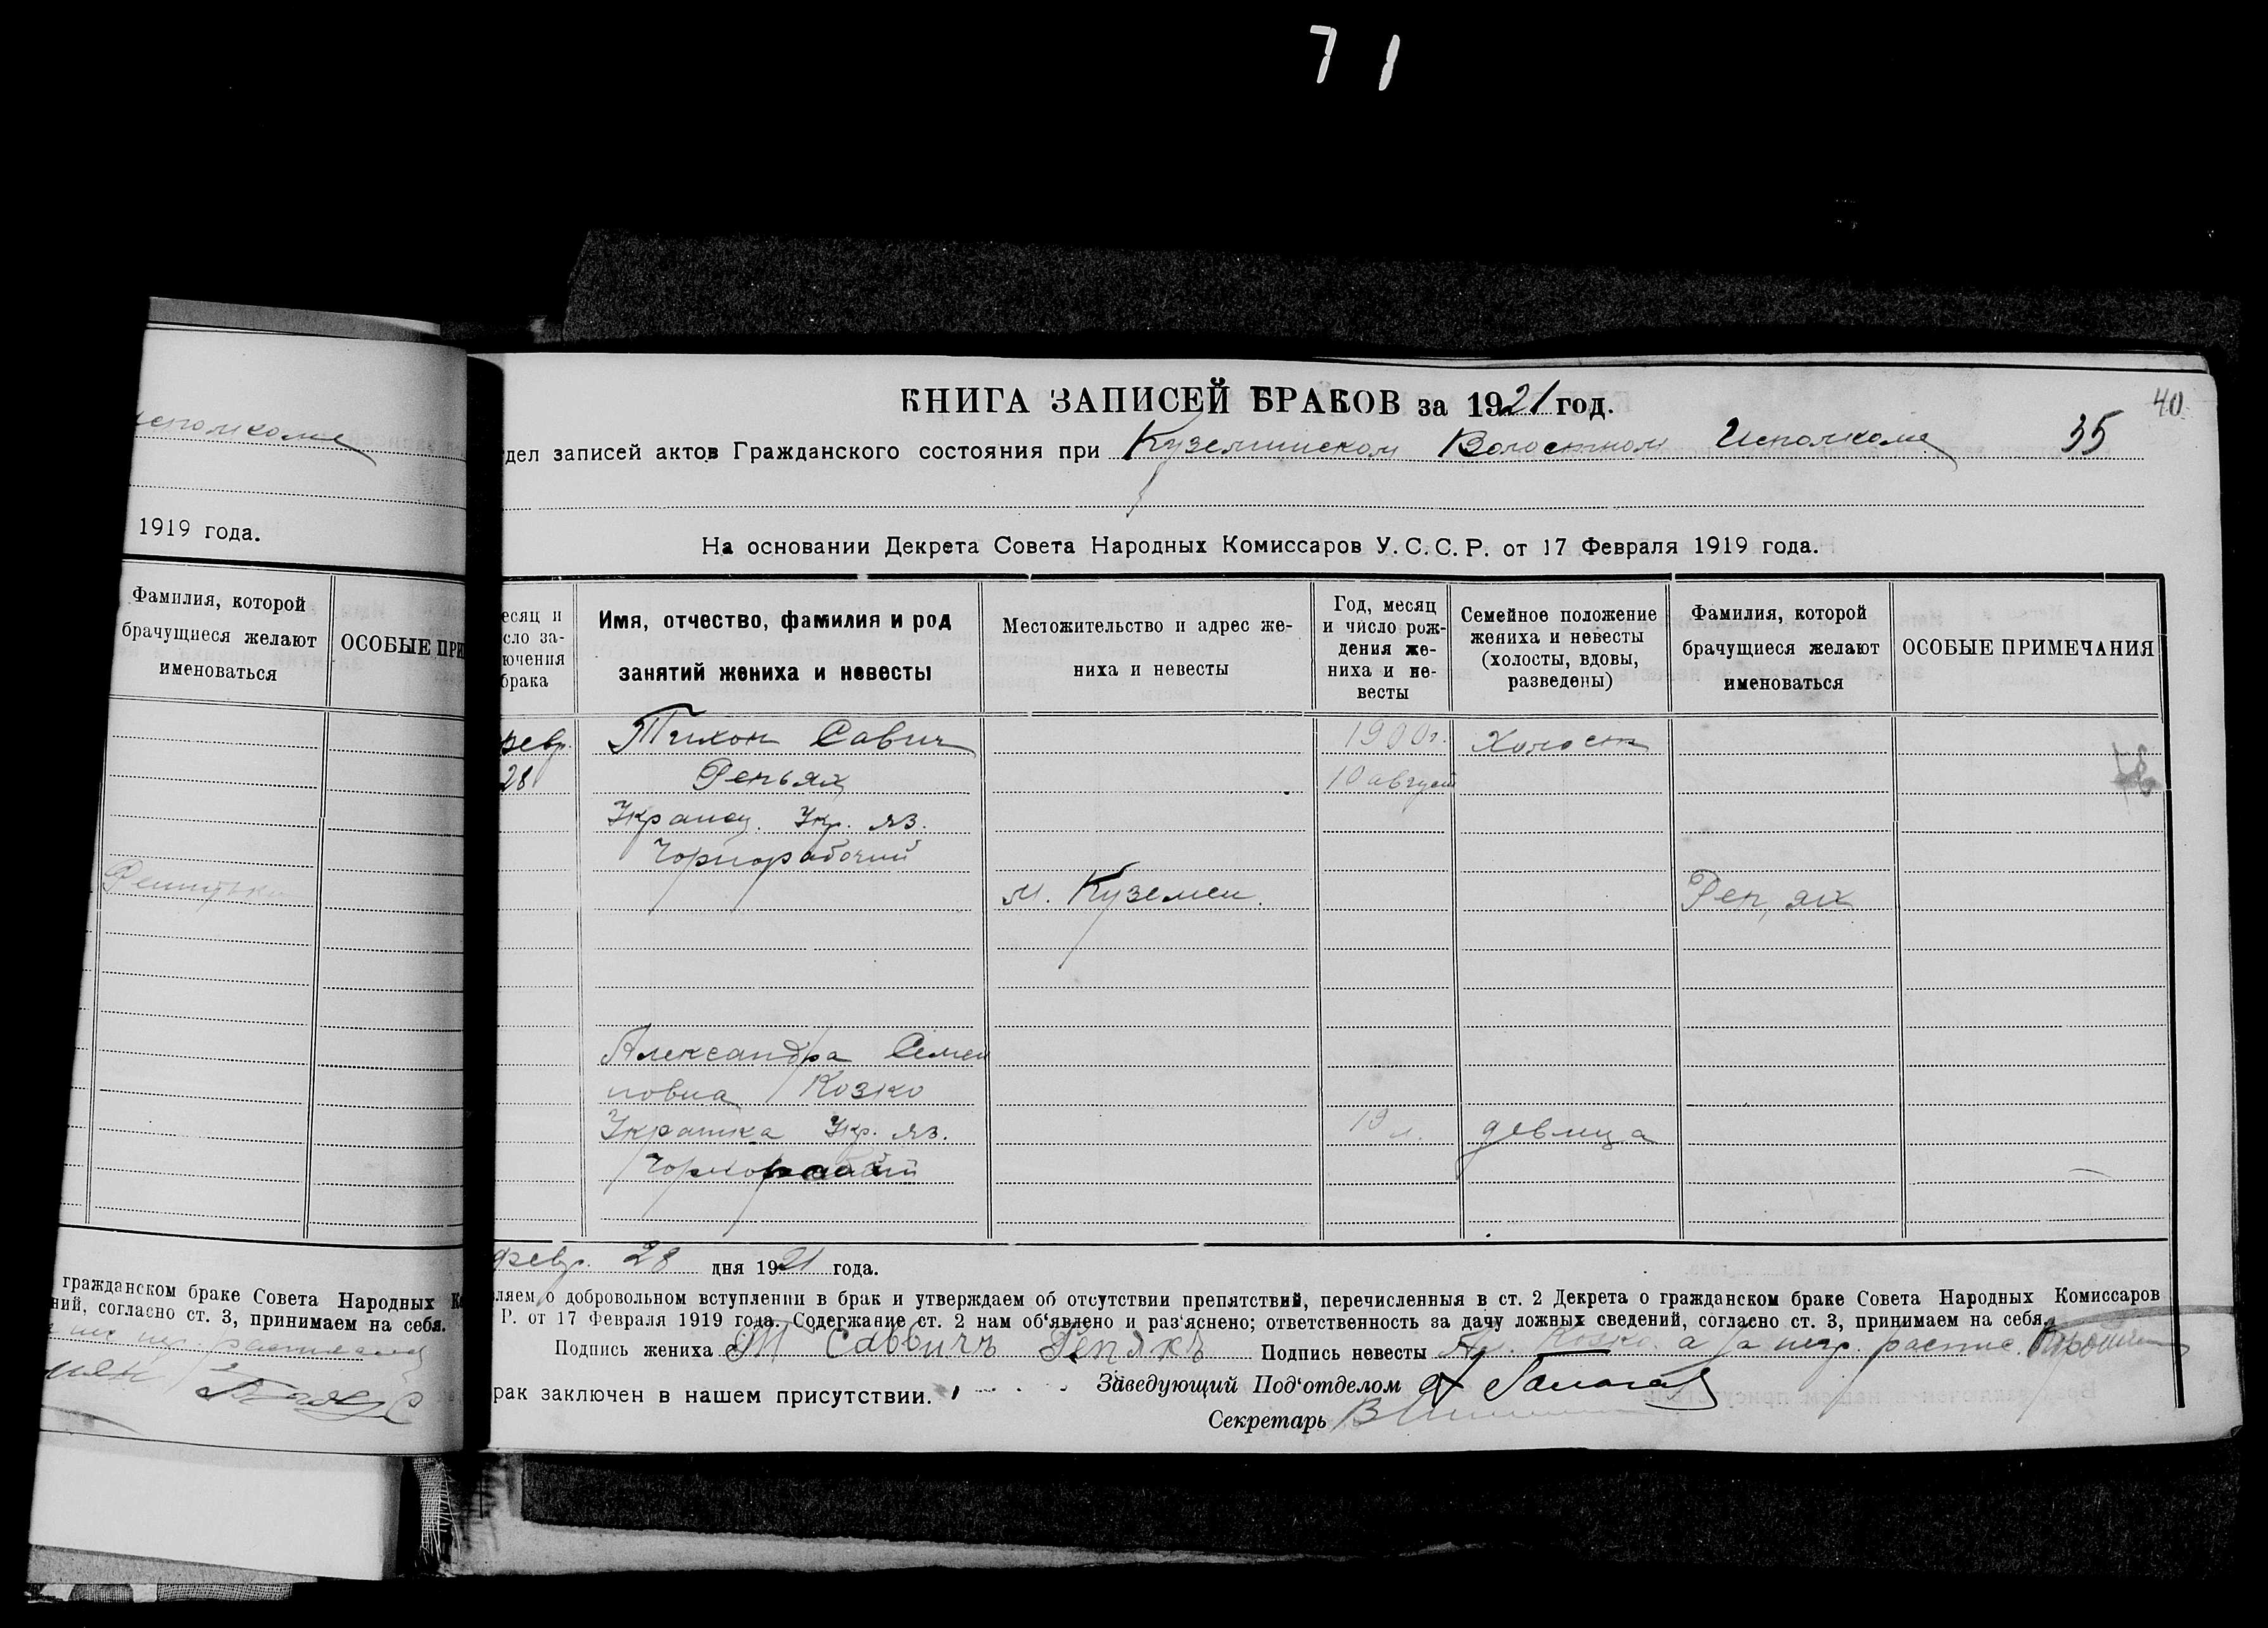 71
исполкоме
1919 года.
Фамилия, которой
брачущиеся желают
именоваться
ОСОБЫЕ ПРИ
гражданском браке Совета Народных К
ний, согласно ст. 3, принимаем на себя.
КНИГА ЗАПИСЕЙ БРАКОВ за 1921 год.
40
дел записей актов Гражданского состояния при Куземинском Волостном Исполкоме
35
На основании Декрета Совета Народных Комиссаров У. С. С. Р. от 17 Февраля 1919 года.
есяц и
сло за-
ючения
брака
Имя, отчество, фамилия и род
занятий жениха и невесты
Местожительство и адрес же-
ниха и невесты
Год, месяц
и число рож-
дения же-
ниха и не-
весты
Семейное положение
жениха и невесты
(холосты, вдовы,
разведены)
Фамилия, которой
брачущиеся желают
именоваться
ОСОБЫЕ ПРИМЕЧАНИЯ
февр. Тихон Савич 1900г. Холост
28 Репьях 10 август
Украинец. Укр. яз.
Чорнорабочий
м. Куземен. Реп, ях
Александра Семен
новна Козко
Украинка Укр. яз. 19 л. девица
февр. 28 дня 1921 года.
ляем о добровольном вступлении в брак и утверждаем об отсутствии препятствий, перечисленныя в ст. 2 Декрета о гражданском браке Совета Народных Комиссаров
Р. от 17 Февраля 1919 года. Содержание ст. 2 нам об'явлено и раз'яснено; ответственность за дачу ложных сведений, согласно ст. 3, принимаем на себя.
Подпись жениха Т Саввичъ Репяхъ Подпись невесты Ал. Козко. а за негр. распис.
рак заключен в нашем присутствии. Заведующий Под'отделом
Секретарь